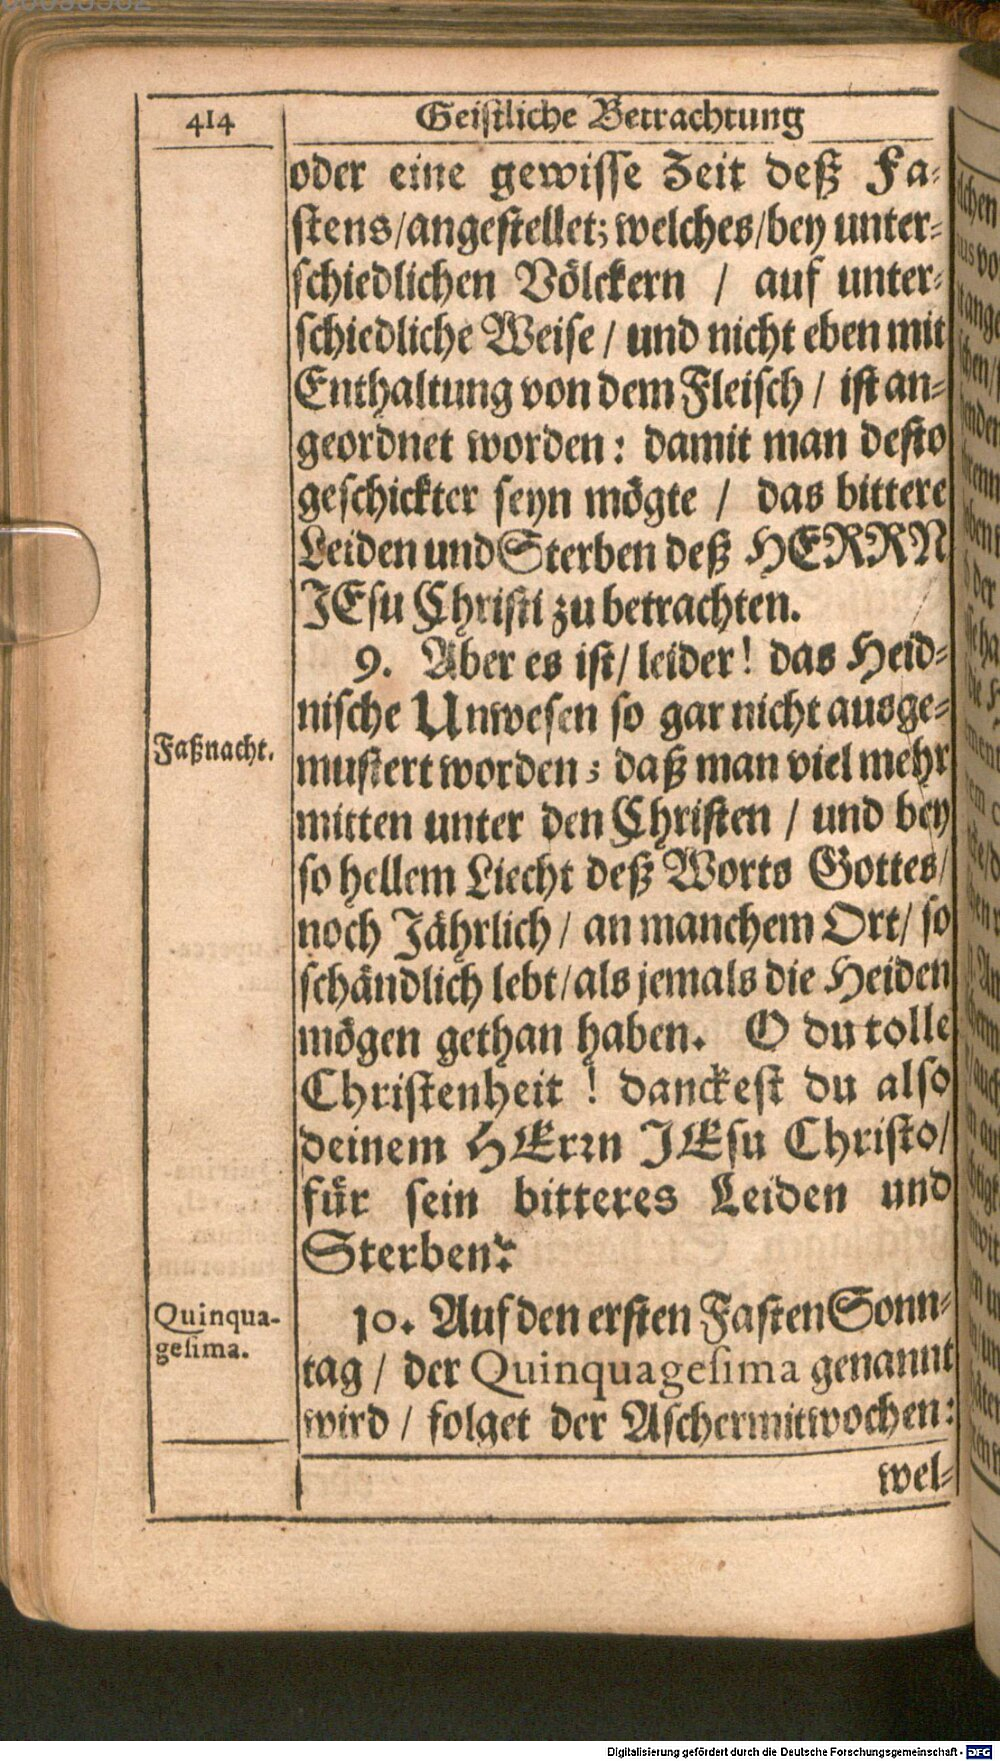 414
Geistliche Betrachtung
oder eine gewisse Zeit deß Fa-
stens/angestellet; welches/bey unter-
schiedlichen Völckern / auf unter-
schiedliche Weise / und nicht eben mit
Enthaltung von dem Fleisch / ist an-
geordnet worden: damit man desto
geschickter seyn mögte / das bittere
Leiden und Sterben deß HERRN
JEsu Christi zu betrachten.
9. Aber es ist/ leider! das Heid-
nische Unwesen so gar nicht ausge-
Faßnacht.
mustert worden; daß man viel mehr
mitten unter den Christen / und bey
so hellem Liecht deß Worts Gottes/
noch Jährlich / an manchem Ort/ so
schändlich lebt/als jemals die Heiden
mögen gethan haben. O du tolle
Christenheit ! danckest du also
deinem HErꝛn JEsu Christo/
für sein bitteres Leiden und
Sterben?
Quinqua-
gesima.
10. Auf den ersten Fasten Sonn-
tag / der Quinquagesima genannt
wird / folget der Aschermitwochen:
wel-
Digitalisierung gefördert durch die Deutsche Forschungsgemeinschaft - DFG